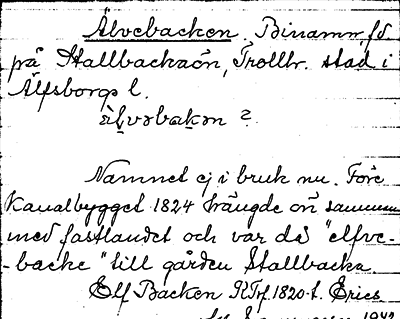 Älvebacken. Binamn, fd
på Stallbackaön, Trollh. stad i
Älfsborgs l.
älvəbakən ?
Namnet ej i bruk nu. Före
Kanalbygget 1824 hängde ön samman
med fastlandet och var då "elfve-
-backe" till gården Stallbacka.
Elf Backen 1820 Erics
1942